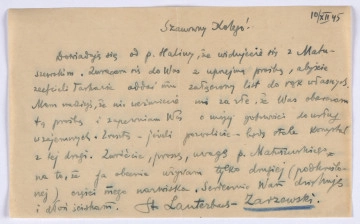 10/XII 45
Szanowny Kolego!
Dowiaduję się od p. Haliny, że widujecie się z Matu-
szewskim. Zwracam się do Was z uprzejmą prośbą, abyście
zechcieli łaskawie oddać mu załączony list do rąk własnych.
Mam nadzieję, że nie weźmiecie mi za złe, że Was obarczam
tą prośbą i zapewniam Was o mojej gotowości do usług
wzajemnych. Zresztą – jeśli pozwolicie – będę stale korzystał
z tej drogi. Zwróćcie, proszę, uwagę p. Matuszewskiego
na to, że ja obecnie używam tylko drugiej (podkreślo-
nej) części mego nazwiska. Serdecznie Wam
i dłoń ściskam. St. Lauterbach-Zarzewski.